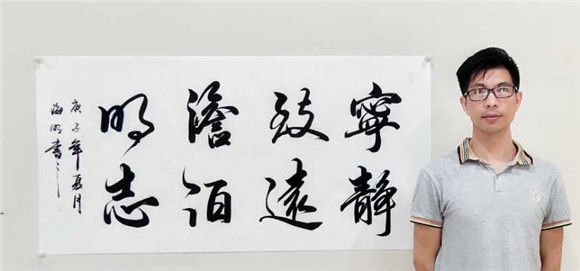 寧靜
致遠
澹泊
明志
庚子年夏月
海书